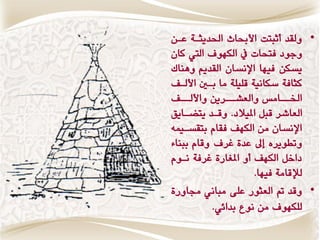 • ولقد أثبتت الأبحاث الحديثة عن
وجود فتحات في الكهوف التي كان
يسكن فيها الإنسان القديم وهناك
كثافة سكانية قليلة ما بين الألف
الخامس والعشرين والألف
العاشر قبل الميلاد. وقد يتضايق
الإنسان من الكهف فقام بتقسيمه
وتطويره إلى عدة غرف وقام ببناء
داخل الكهف أو المغارة غرفة نوم
للإقامة فيها.
• وقد تم العثور على مباني مجاورة
للكهوف من نوع بدائي.